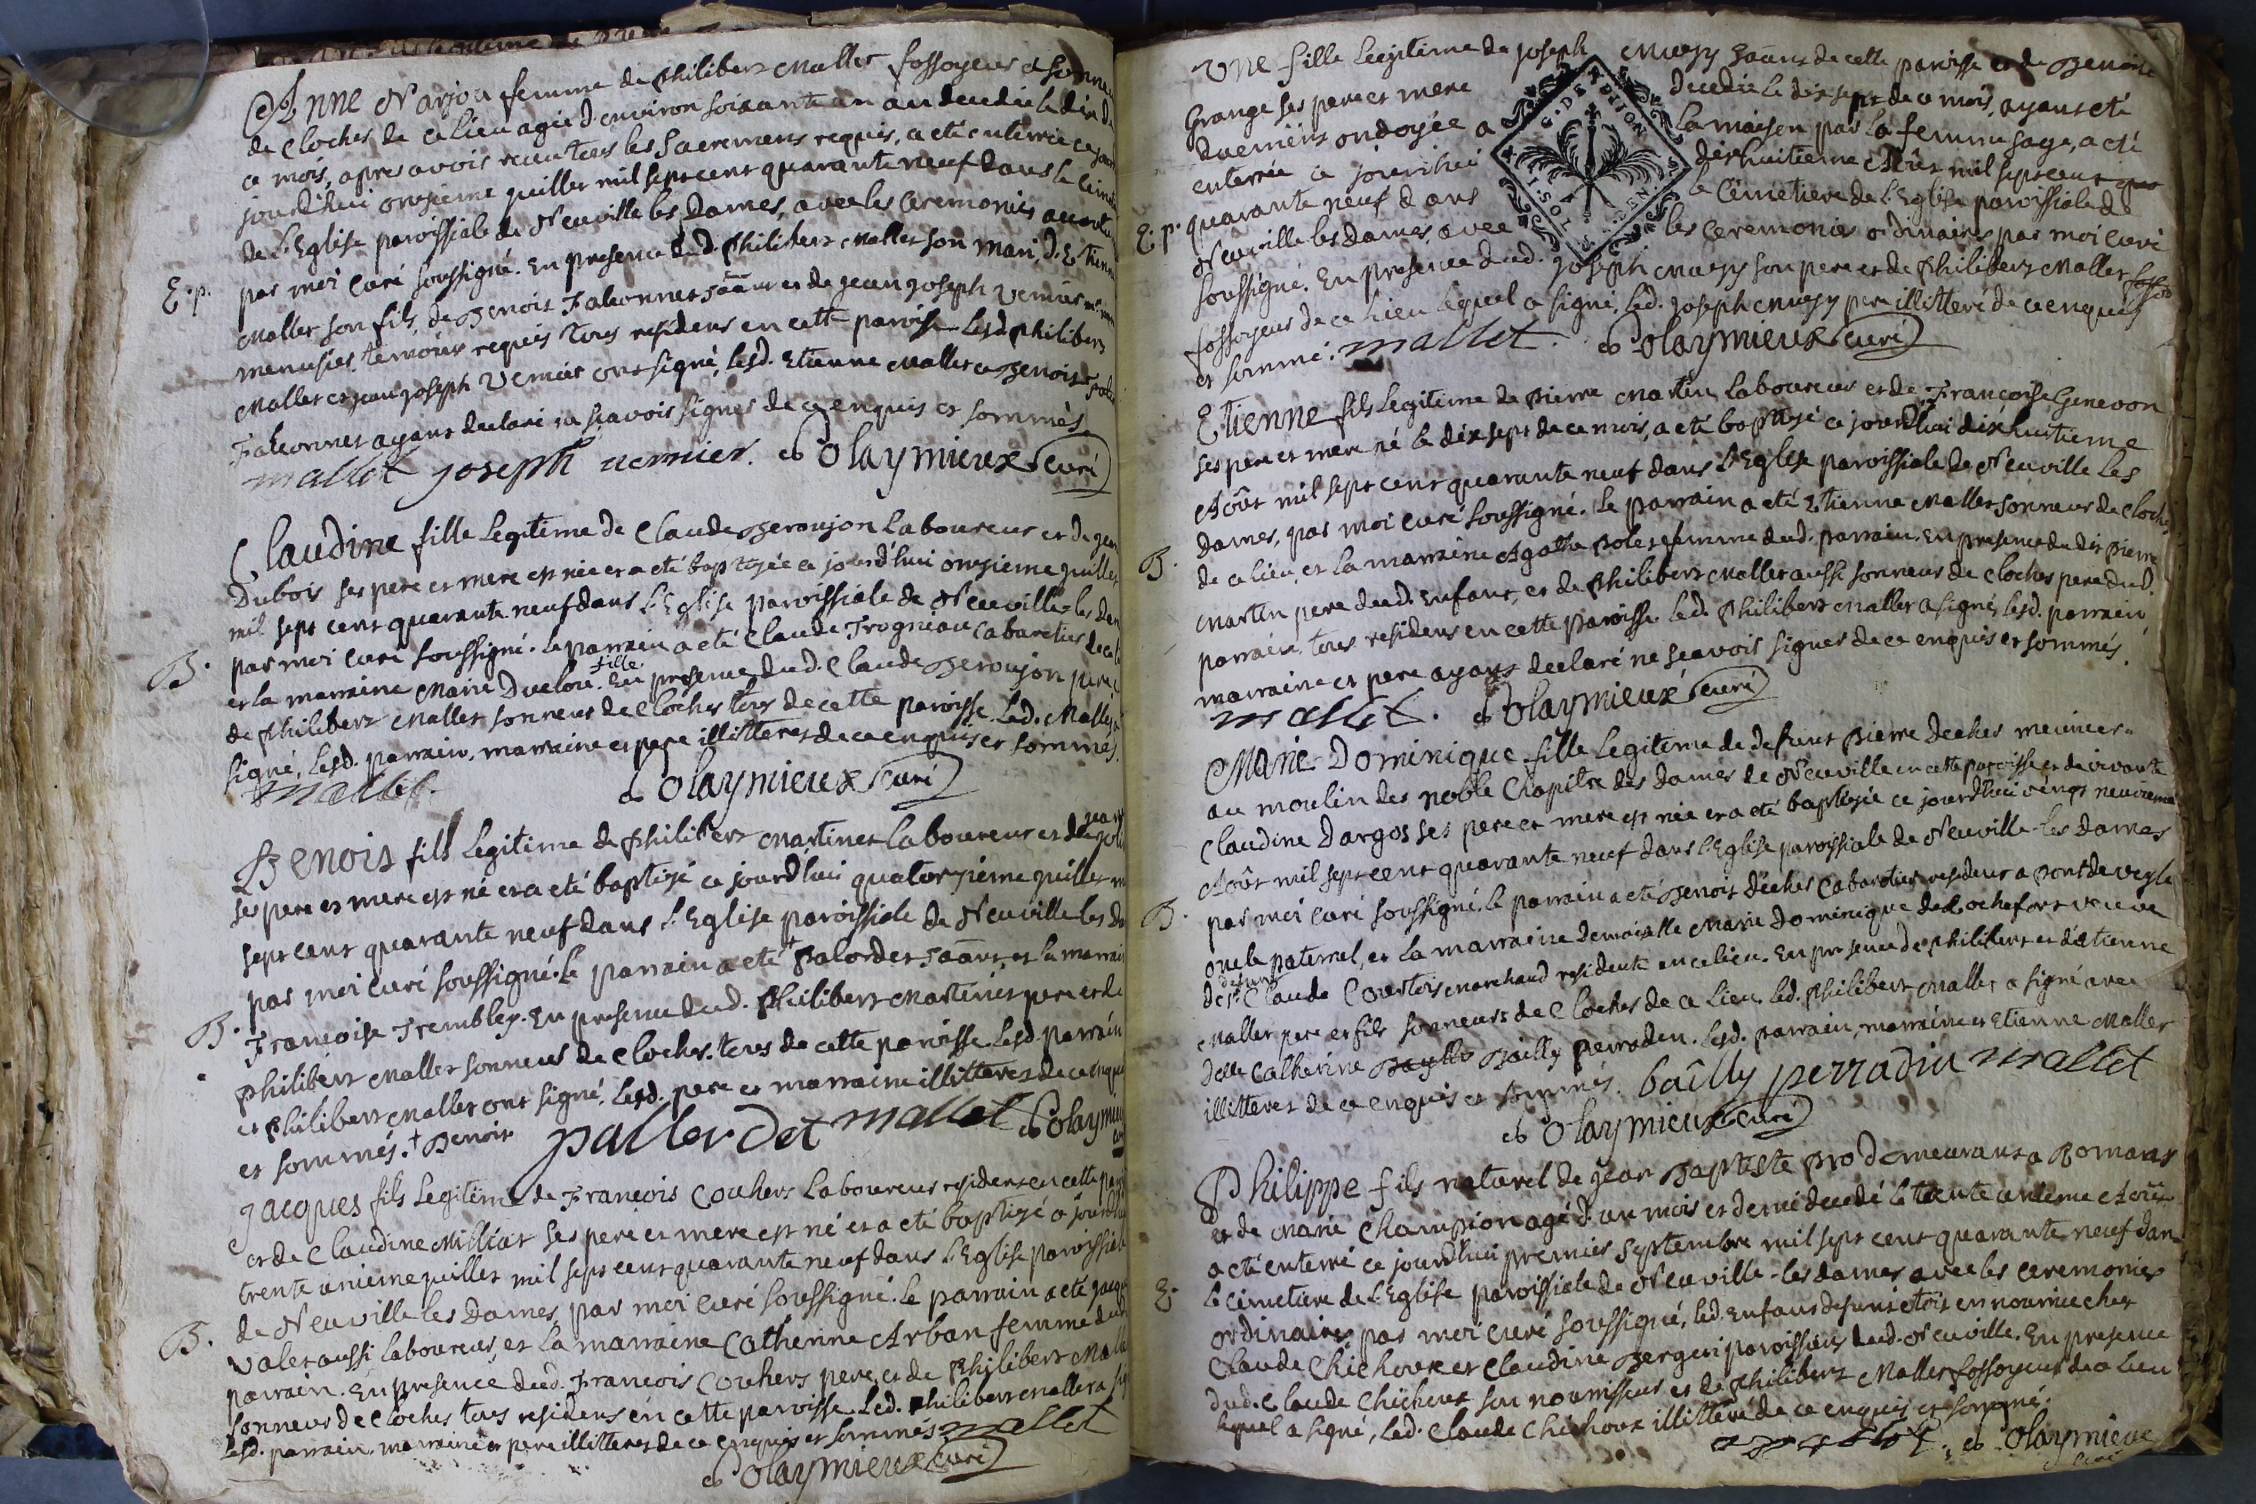 Anne Narjou femme de Philibert Mallet fossoyeur et sonneur
de Cloches de ce lieu agée d'environ soixante un an decedée le dix de
ce mois, apres avois receu tous les Sacremens requis, a eté enterrée ce
jourd'hui onzieme juillet mil sept cent quarante neuf dans le Cimetiere
de l'Eglise paroissiale de Neuville les Dames, avec les Ceremonies accoutu
par moi Curé soussigné. En presence dud. Philibert Mallet son mari, d'Etienne
E. p.
Mallet son fils, de Benoit Falconnet et de jean joseph Vernier
menusier temoins requis tous residens en cette paroisse. Lesd. Philibert
Mallet et jean joseph Vernier ont signé, lesd. Etienne Mallet et Benoit
Falconnet ayans declaré ne sçavoir signer de ce enquis et sommés.
mallet joseph vernier. Polaymieux curé
Claudine fille Legitime de Claude Beroujon Laboureur et de
Dubois ses pere et mere est née et a eté baptizée ce jourd'hui onzieme juillet
mil sept cent quarante neuf dans l'Eglise paroissiale de Neuville-les
par moi curé soussigné. le parrain a eté Claude Trogneau Cabaretier de ce
B.
et la marraine Marie Duclou fille. En presence dud. Claude Beroujon pere
de Philibert Mallet sonneur de Cloches tous de cette paroisse. Led. Mallet a
signé, lesd. parrain, marraine et pere illitteres de ce enquis et sommés.
mallet. Polaymieux curé
Benois fils Legitime de Philibert Martinet Laboureur et de
ses pere et mere est né et a eté baptizé ce jourd'hui quatorzieme juillet
sept cent quarante neuf dans l'Eglise paroissiale de Neuville les
par moi curé soussigné. le parrain a eté † Palordet et la marraine
B.
Françoise Trembley. En presence dud. Philibert Martinet pere et de
Philibert Mallet sonneur de Cloches. tous de cette paroisse. Lesd. parrain
et Philibert Mallet ont signé, lesd. pere et marraine illitteres de ce enquis
et sommés. † Benoit pallerdet mallet Polaymieux
Jacques fils Legitime de François Couhert Laboureur residens en cette
et de Claudine Milliat ses pere et mere est né et a eté baptizé ce jourd'hui
trente unieme juillet mil sept cent quarante neuf dans l'Eglise paroissiale
de Neuville les Dames, par moi curé soussigné. le parrain a eté
B.
Valet aussi Laboureur, et la marraine Catherine Arban femme dud.
parrain. En presence dud. François Couhert pere, et de Philibert Mallet
sonneur de Cloches tous residens en cette paroisse. Led. Philibert Mallet a
lesd. parrain, marraine et pere illitteres de ce enquis et sommés mallet
Polaymieux curé
Une fille Legitime de Joseph de cette paroisse et de Benoite
Grange ses pere et mere decedée le dix sept de ce mois, ayans eté
ondoyée a la maison par la femme sage, a eté
enterrée ce jourd'hui dix huitieme Aoûst mil sept cent
E. p.
quarante neuf dans le Cimetiere de l'Eglise paroissiale de
Neuville les Dames, avec les Ceremonies ordinaires par moi curé
soussigné. En presence dud. Joseph son pere et de Philibert Mallet
fossoyeur de ce lieu lequel a signé, led. Joseph pere illitteré de ce enquis
et sommé. mallet. Polaymieux curé
G. DE DIJON
Etienne fils Legitime de Pierre Martin Laboureur et de Françoise Genevon
ses pere et mere né le dix sept de ce mois, a eté baptizé ce jourd'hui dix huitieme
Aoûst mil sept cent quarante neuf dans l'Eglise paroissiale de Neuville les
Dames, par moi curé soussigné. le parrain a eté Etienne Mallet sonneur de Cloches
B.
de ce lieu, et la marraine Agathe Polet femme dud. parrain. En presence du dit Pierre
Martin pere dud. Enfant, et de Philibert Mallet aussi sonneur de Cloches pere dud.
parrain. tous residens en cette paroisse. led. Philibert Mallet a signé, lesd. parrain
marraine et pere ayans declaré ne sçavoir signer de ce enquis et sommés.
mallet. Polaymieux curé
Marie Dominique fille Legitime de defunt Pierre Dechet meunier
au moulin des noble Chapitre des Dames de Neuville en cette paroisse et de vivante
Claudine Dargos ses pere et mere est née et a eté baptizée ce jourd'hui vingt neuvieme
Aoûst mil sept cent quarante neuf dans l'Eglise paroissiale de Neuville-les Dames
B.
par moi curé soussigné. le parrain a eté Benoit Dechet Cabaretier resident a Pontdevesle
oncle paternel, et la marraine demoiselle Marie Dominique de Rochefort veuve
de defunt Sr Claude Courtois marchand residente en ce lieu. En presence de Philibert et d'Etienne
Mallet pere et fils sonneurs de Cloches de ce Lieu. led. Philibert Mallet a signé avec
Delle Catherine Bailly Perradin. Lesd. parrain, marraine et Etienne Mallet
illitteres de ce enquis et sommés. bailly perradin mallet
Polaymieux curé
Philippe fils naturel de Jean Baptiste Pro Demeurant a Romans
et de Marie Champion agé d'un mois et demi decedé le trente unieme Aoûst
a eté enterré ce jourd'hui premier Septembre mil sept cent quarante neuf dans
E.
le cimetiere de l'Eglise paroissiale de Neuville-les Dames avec les Ceremonies
ordinaires par moi curé soussigné, led. Enfant defunt etoit en nourrice chez
Claude Chichoux et Claudine Berger paroissiens dud. Neuville. En presence
dud. Claude Chichoux son nourrisseur et de Philibert Mallet fossoyeur de ce lieu
lequel a signé, led. Claude Chichoux illitteré de ce enquis et sommé.
mallet. Polaymieux
curé